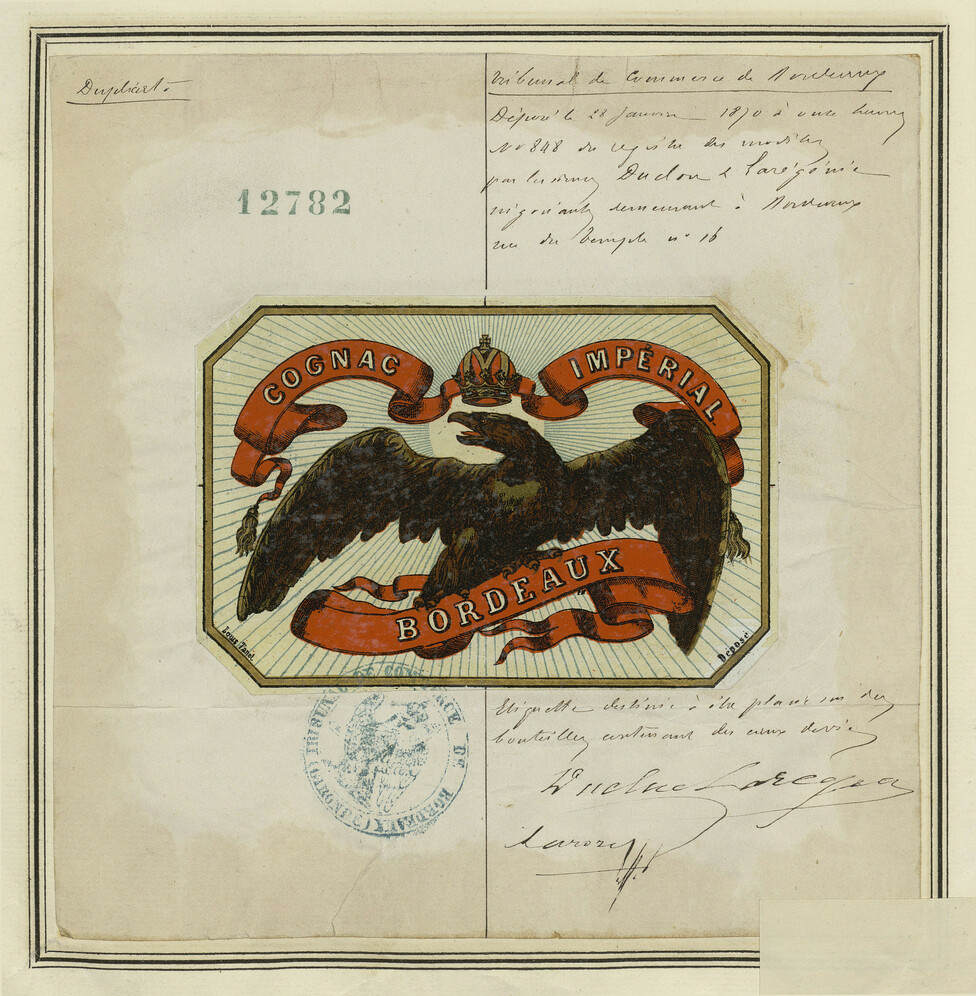 Duplicat
Tribunal de Commerce de Bordeaux
Déposé le 28 Janvier 1870 à onze heures
No 848 du registre des modèles
par les sieurs Duclou & Larégénie
négociants demeurant à Bordeaux
rue du Temple no 16
12782
COGNAC IMPÉRIAL
BORDEAUX
Louis Tanet
Déposé
TRIBUNAL DE COMMERCE DE BORDEAUX (GIRONDE)
Etiquette destinée à être placée sur des
bouteilles contenant des eaux de vie